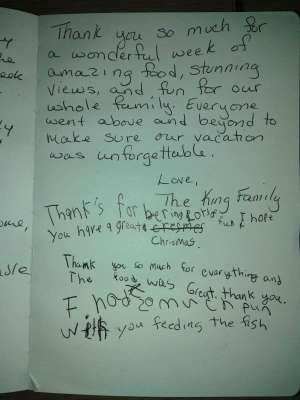 Thank you so much for
a wonderful week of
amazing food, stunning
views, and fun for our
whole family. Everyone
went above and beyond to
make sure our vacation
was unforgettable.
Love,
The King Family
Thank's for being
fun I hope
you have a great
Chrismas.
Thank you so much for everything and
The food was Great. thank you.
I had so much fun
with you feeding the fish